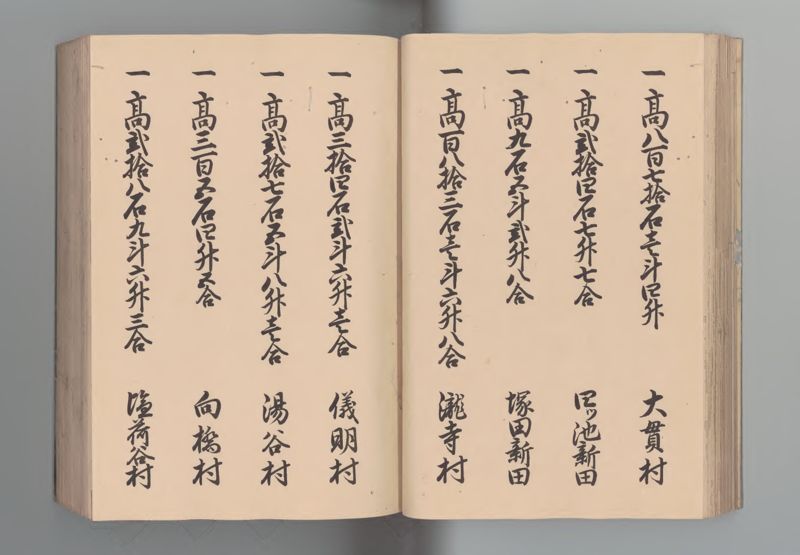 一高八百七拾石壱斗四升 大貫村
一高弐拾四石七升七合 四ツ池新田
一高九石五斗弐升八合 塚田新田
一高百八拾三石壱斗六升八合 瀧寺村
一高三拾四石弐斗六升壱合 儀明村
一高弐拾七石五斗八升壱合 湯谷村
一高三百五石四升五合 向橋村
一高弐拾八石九斗六升三合 塩荷谷村